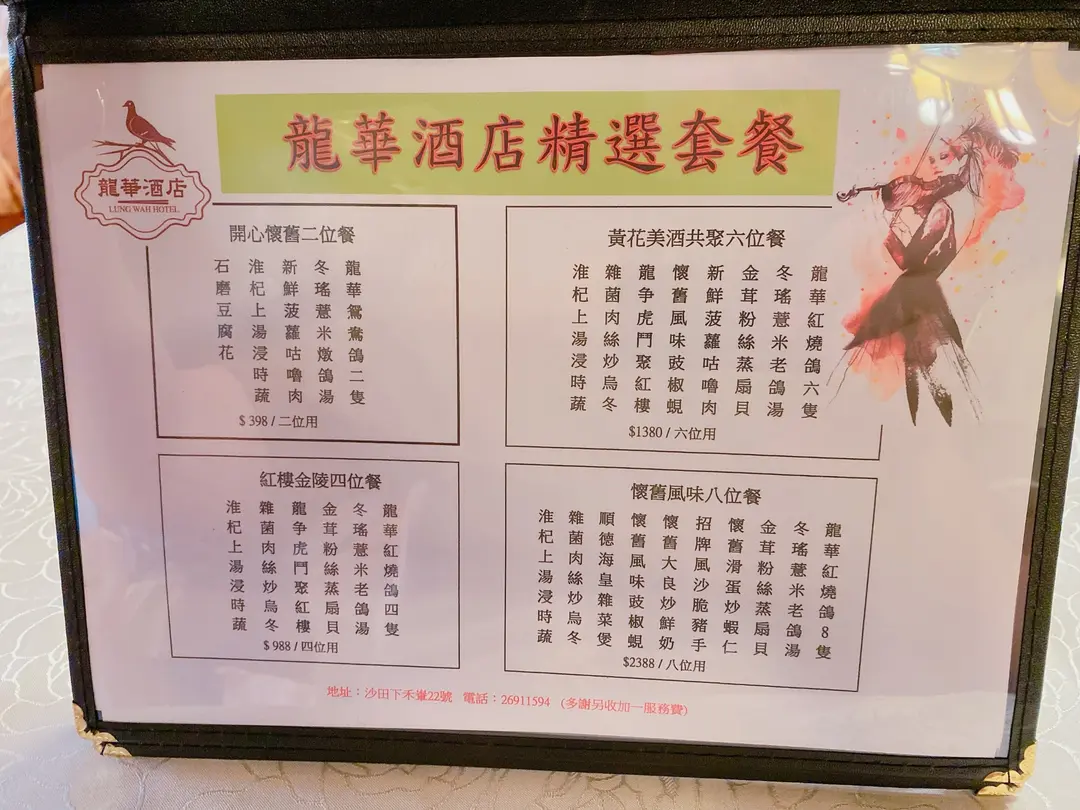 龍華酒店精選套餐
龍華酒店
LUNG WAH HOTEL
開心懷舊二位餐
龍華鴛鴦鴿二隻
冬瑤薏米燉鴿湯
新鮮菠蘿咕嚕肉
淮杞上湯浸時蔬
石磨豆腐花
$ 398 / 二位用
黃花美酒共聚六位餐
龍華紅燒鴿六隻
冬瑤薏米老鴿湯
金茸粉絲蒸扇貝
新鮮菠蘿咕嚕肉
懷舊風味豉椒蜆
龍争虎鬥聚紅樓
雜菌肉絲炒烏冬
淮杞上湯浸時蔬
$1380 / 六位用
紅樓金陵四位餐
龍華紅燒鴿四隻
冬瑤薏米老鴿湯
金茸粉絲蒸扇貝
龍争虎鬥聚紅樓
雜菌肉絲炒烏冬
淮杞上湯浸時蔬
$ 988 / 四位用
懷舊風味八位餐
龍華紅燒鴿8隻
冬瑤薏米老鴿湯
金茸粉絲蒸扇貝
懷舊滑蛋炒蝦仁
招牌風沙脆豬手
懷舊大良炒鮮奶
懷舊風味豉椒蜆
順德海皇雜菜煲
雜菌肉絲炒烏冬
淮杞上湯浸時蔬
$2388 / 八位用
地址：沙田下禾輋22號 電話：26911594 (多謝另收加一服務費)